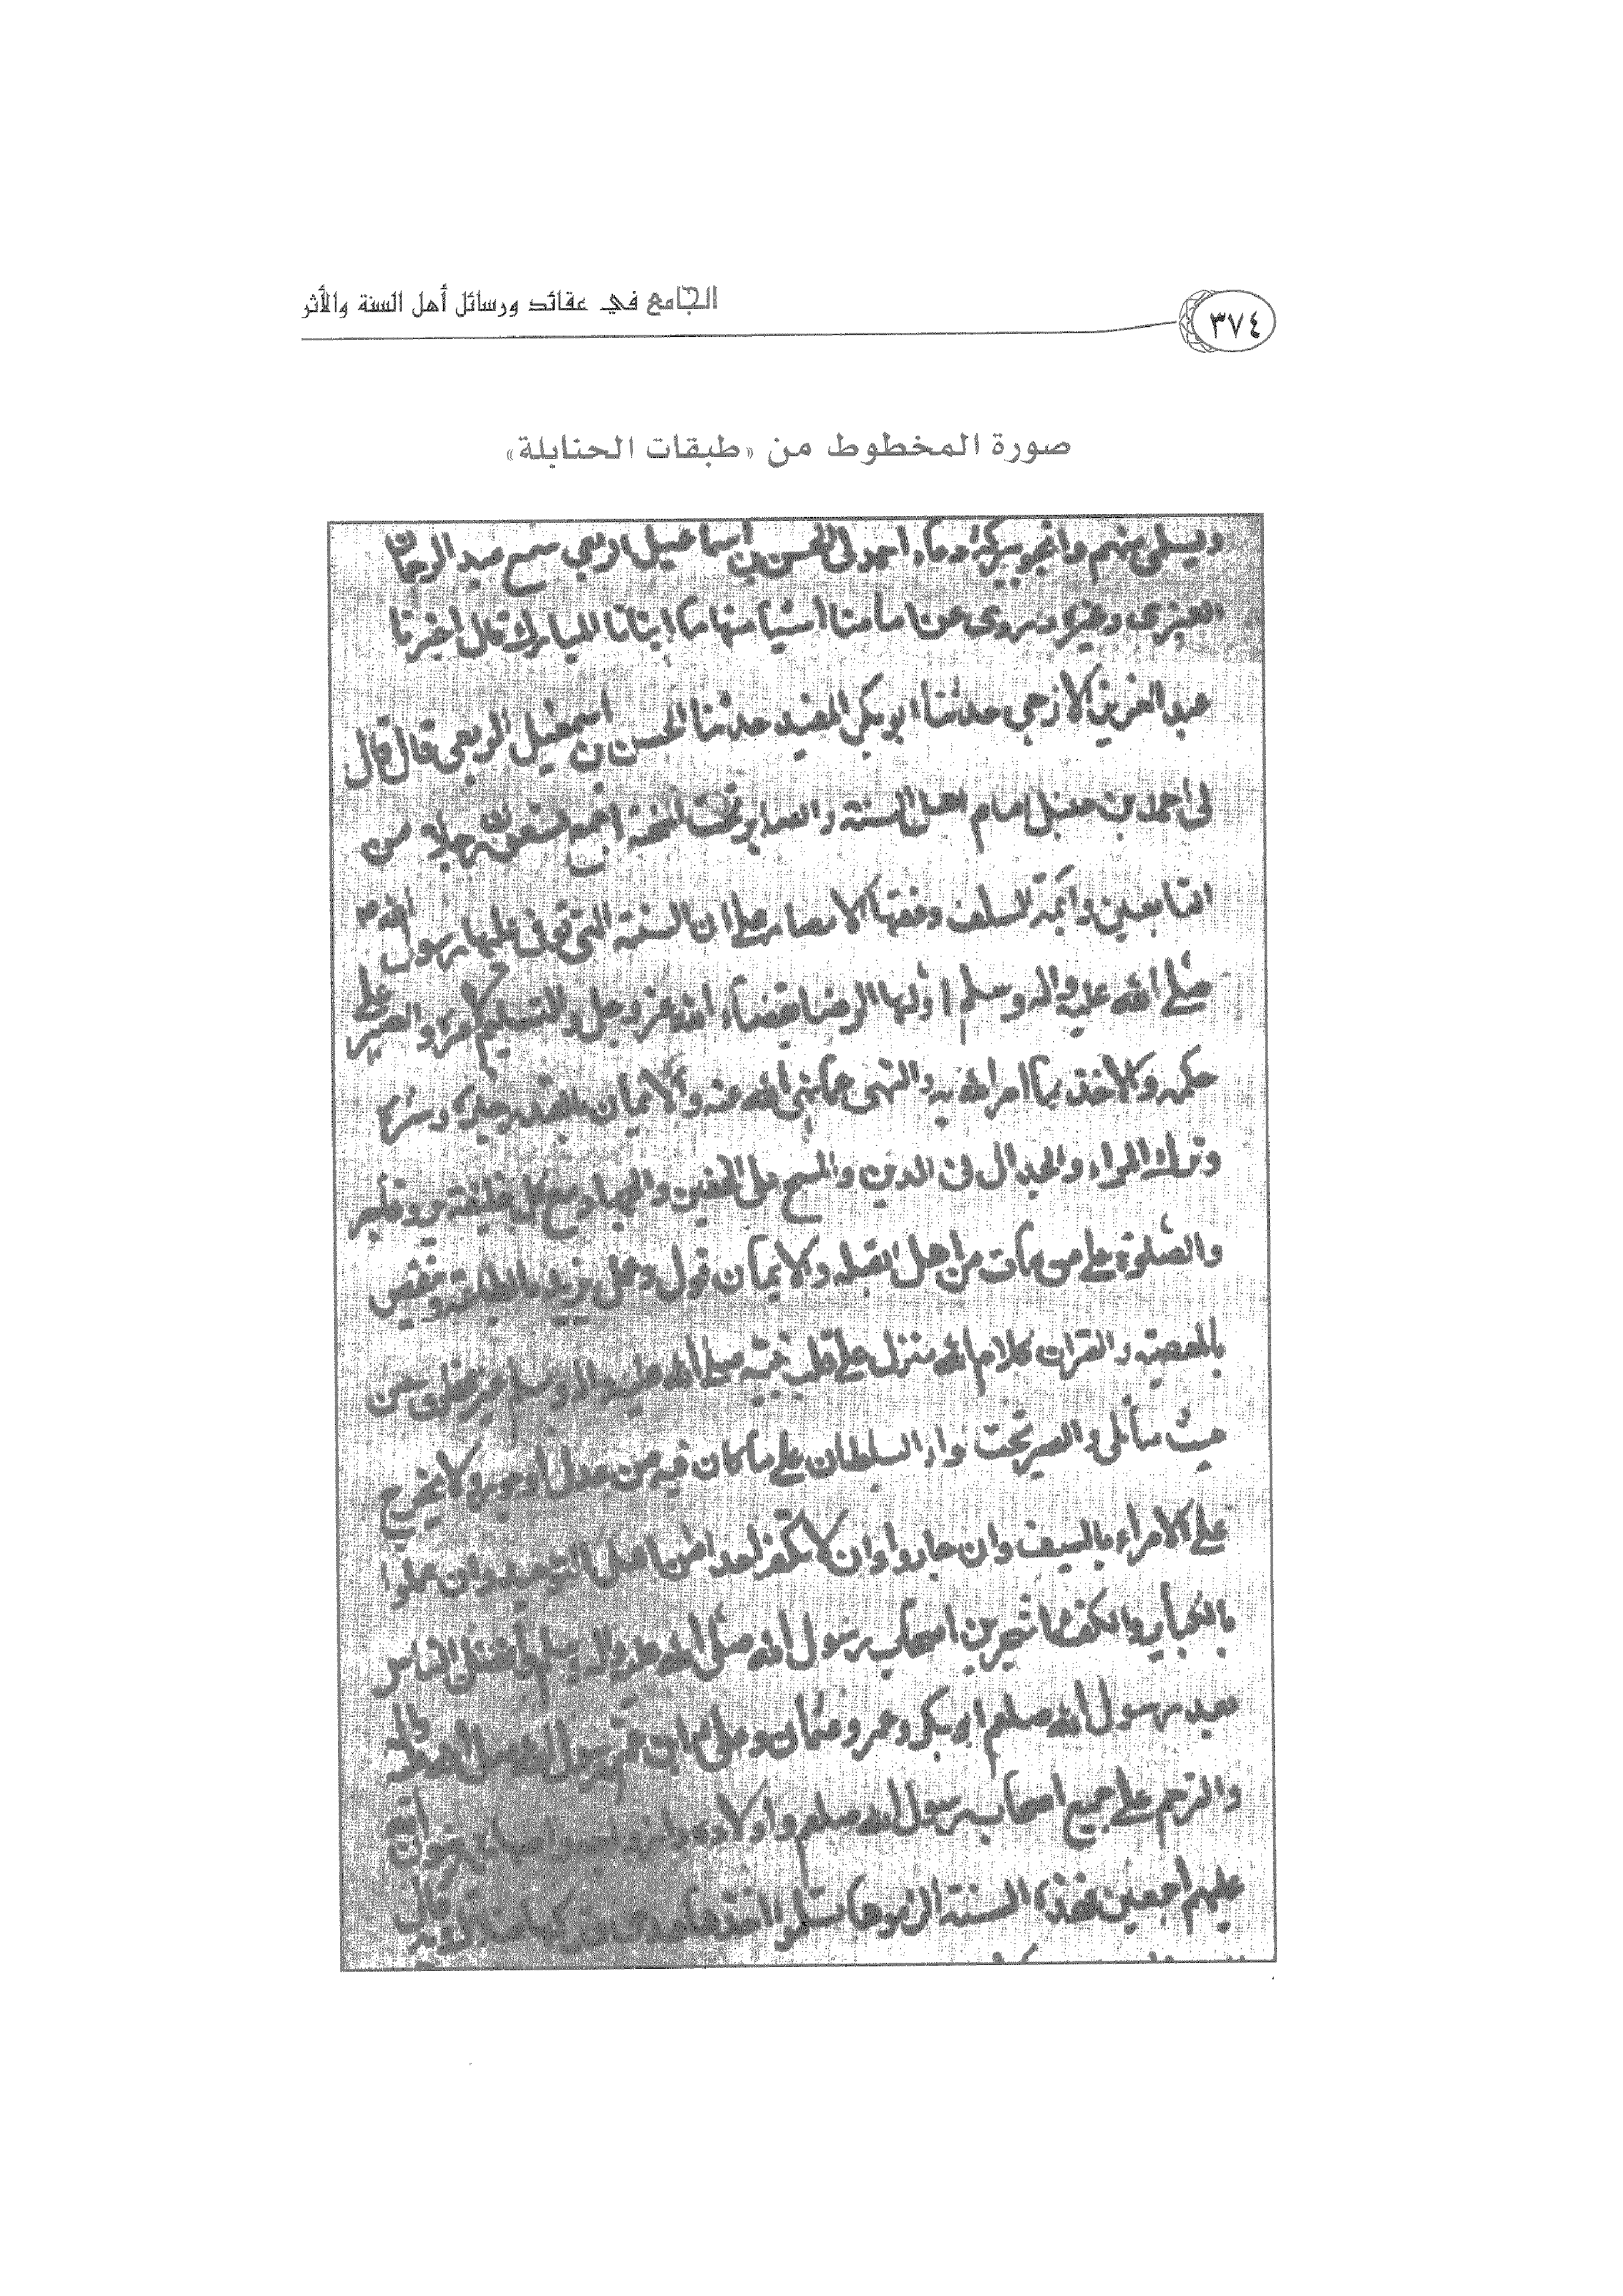 الجامع في عقائد ورسائل أهل السنة والأثر
٣٧٤
صورة المخطوط من «طبقات الحنابلة»
احمد الحسن بن اسماعيل الربعي سمع عبد الرحمن
وغيره وروى عن امامنا اشيا منها ما انبانا المبارك قال اخبرنا
عبد العزيز الازجي حدثنا ابو بكر المفيد حدثنا الحسن بن اسمعيل الربعي قال قال
لي احمد بن حنبل امام اهل السنة والصابر تحت المحنة اجمع تسعون رجلا من
التابعين وائمة السلف وفقها الامصار على ان السنة التي توفي عليها رسول الله
صلى الله عليه واله وسلم اولها الرضا بقضاء الله عز وجل والتسليم لامره والصبر على
حكمه والاخذ بما امر الله به والنهي عما نهى الله عنه والايمان بالقدر خيره وشره
وترك المراء والجدال في الدين والمسح على الخفين والجهاد مع كل خليفة بر وفاجر
والصلوة على من مات من اهل القبله والايمان قول وعمل يزيد بالطاعة وينقص
بالمعصية والقران كلام الله منزل على قلب نبيه صلى الله عليه واله وسلم غير مخلوق من
حيث ما تلي والصبر تحت لواء السلطان على ما كان فيه من عدل او جور ولا يخرج
على الامراء بالسيف وان جاروا وان لا نكفر احدا من اهل التوحيد وان عملوا
بالكباير والكف عما شجر بين اصحاب رسول الله صلى الله عليه واله وسلم وافضل الناس
بعد رسول الله صلعم ابو بكر وعمر وعثمان وعلي ابن عم رسول الله
والترحم على جميع اصحاب رسول الله صلعم واولاده وازواجه واصهاره رضوان الله
عليهم اجمعين فهذه السنة الزموها تسلموا اخذها